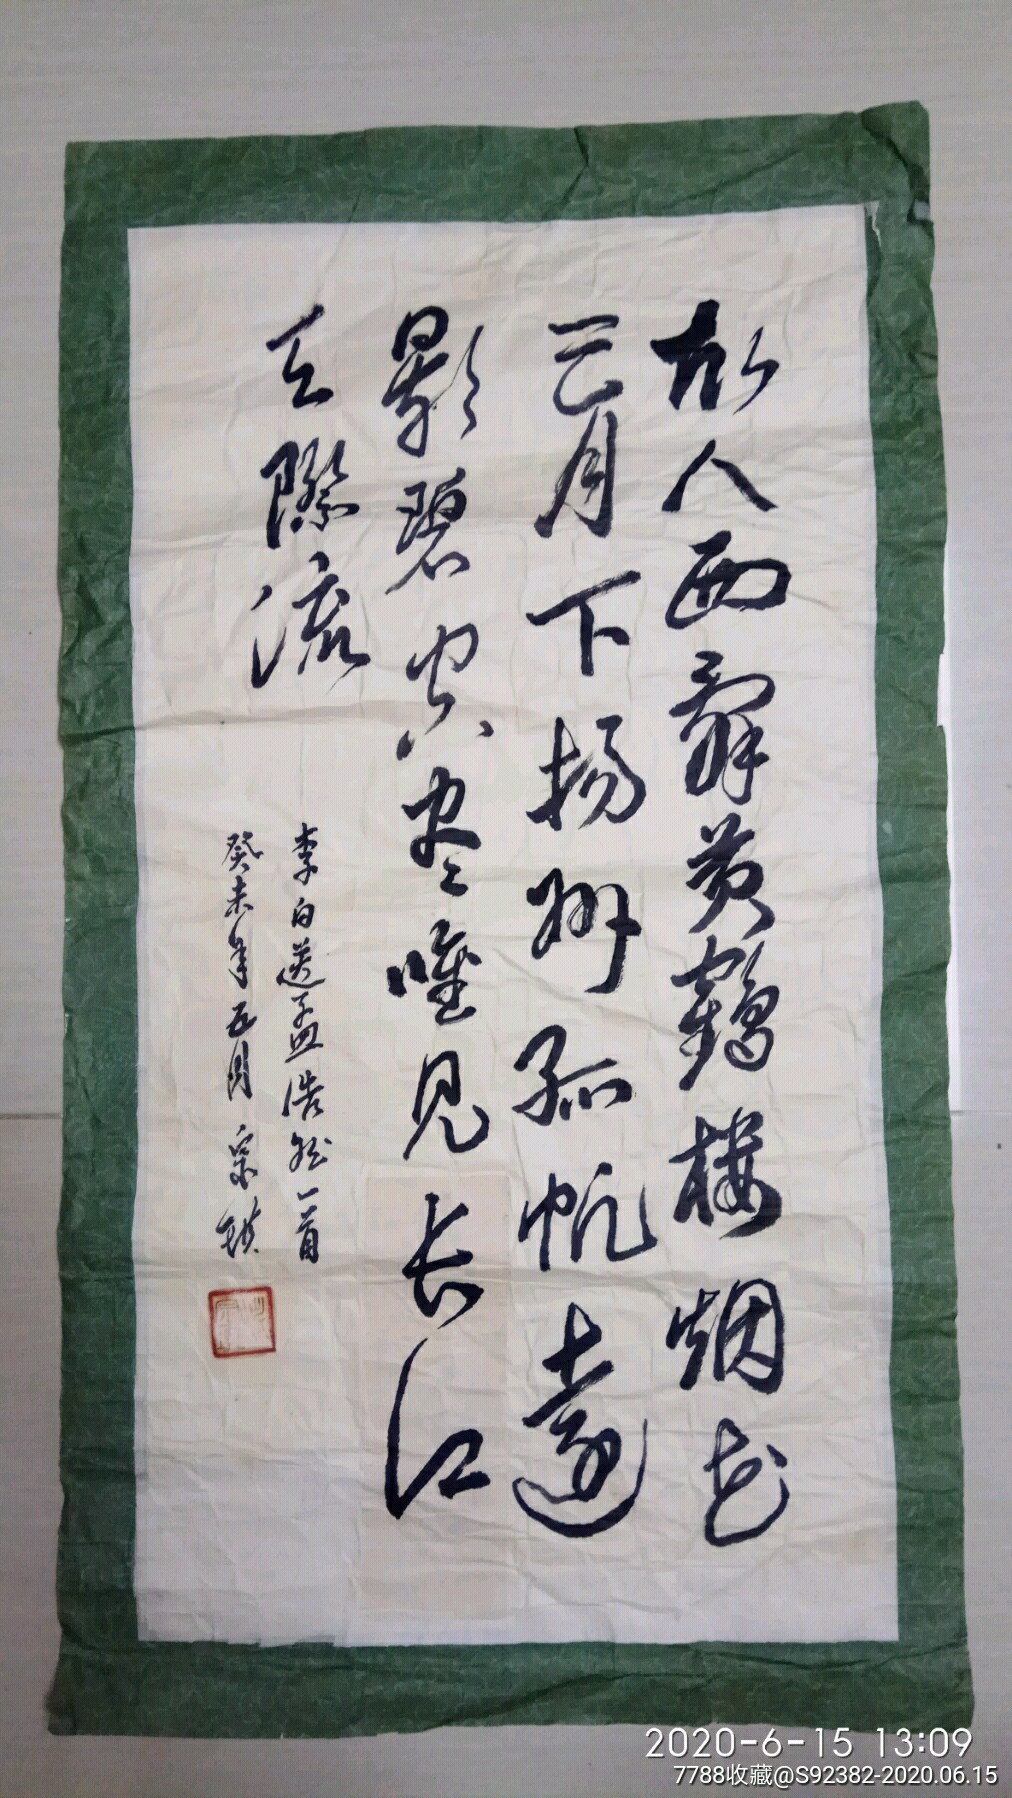 故人西辞黄鹤楼烟花
三月下扬州孤帆远
影碧空尽唯见长江
天际流
李白送孟浩然一首
癸未年五月宗瑛
2020-6-15 13:09
7788收藏@S92382-2020.06.15